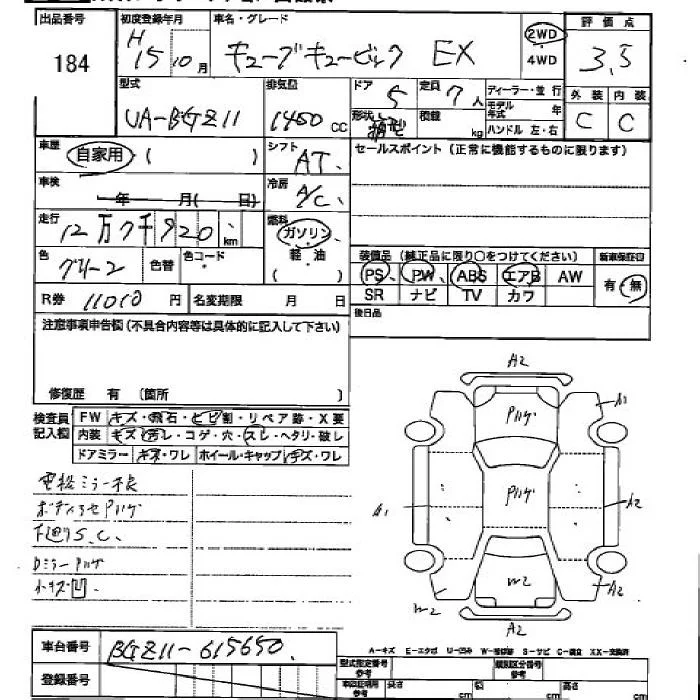 出品番号 初度登録年月 車名・グレード 2WD 評価点
184 H 15 10月 キューブキュービック EX 4WD 3.5
型式 排気量 ドア 定員 ディーラー・並行 外装 内装
UA-BGZ11 1400 CC 5 7人 モデル年式 年 C C
形状 箱型 積載 kg ハンドル 左・右
車歴 自家用 ( ) シフト AT セールスポイント (正常に機能するものに限ります)
車検 年 月( 日) 冷房 A/C
走行 12万7千920 km 燃料 ガソリン・軽油 ( )
色 グリーン 色替 色コード 装備品 (純正品に限り○をつけてください) 新車保証書
PS PW ABS エアB AW 有・無
R券 11010円 名変期限 月 日 SR ナビ TV カワ
注意事項申告欄(不具合内容等は具体的に記入して下さい) 後日品
修復歴 有 〔箇所 〕
検査員記入欄 FW キズ・飛石・ヒビ割・リペア跡・X要
内装 キズ・汚レ・コゲ・穴・スレ・ヘタリ・破レ
ドアミラー キズ・ワレ ホイール・キャップ キズ・ワレ
電格ミラー不良
下廻りS.C.
Dミラー Pハゲ
小キズ凹
A2
Pハゲ A1
A1 Pハゲ A2
m2 A2
m2 A2
車台番号 BGZ11-615650
A-キズ E-エクボ U-凹み W-補修跡 S-サビ C-腐食 XX-交換済
登録番号 型式指定番号 類別区分番号
参考 長さ cm 幅 cm 高さ cm